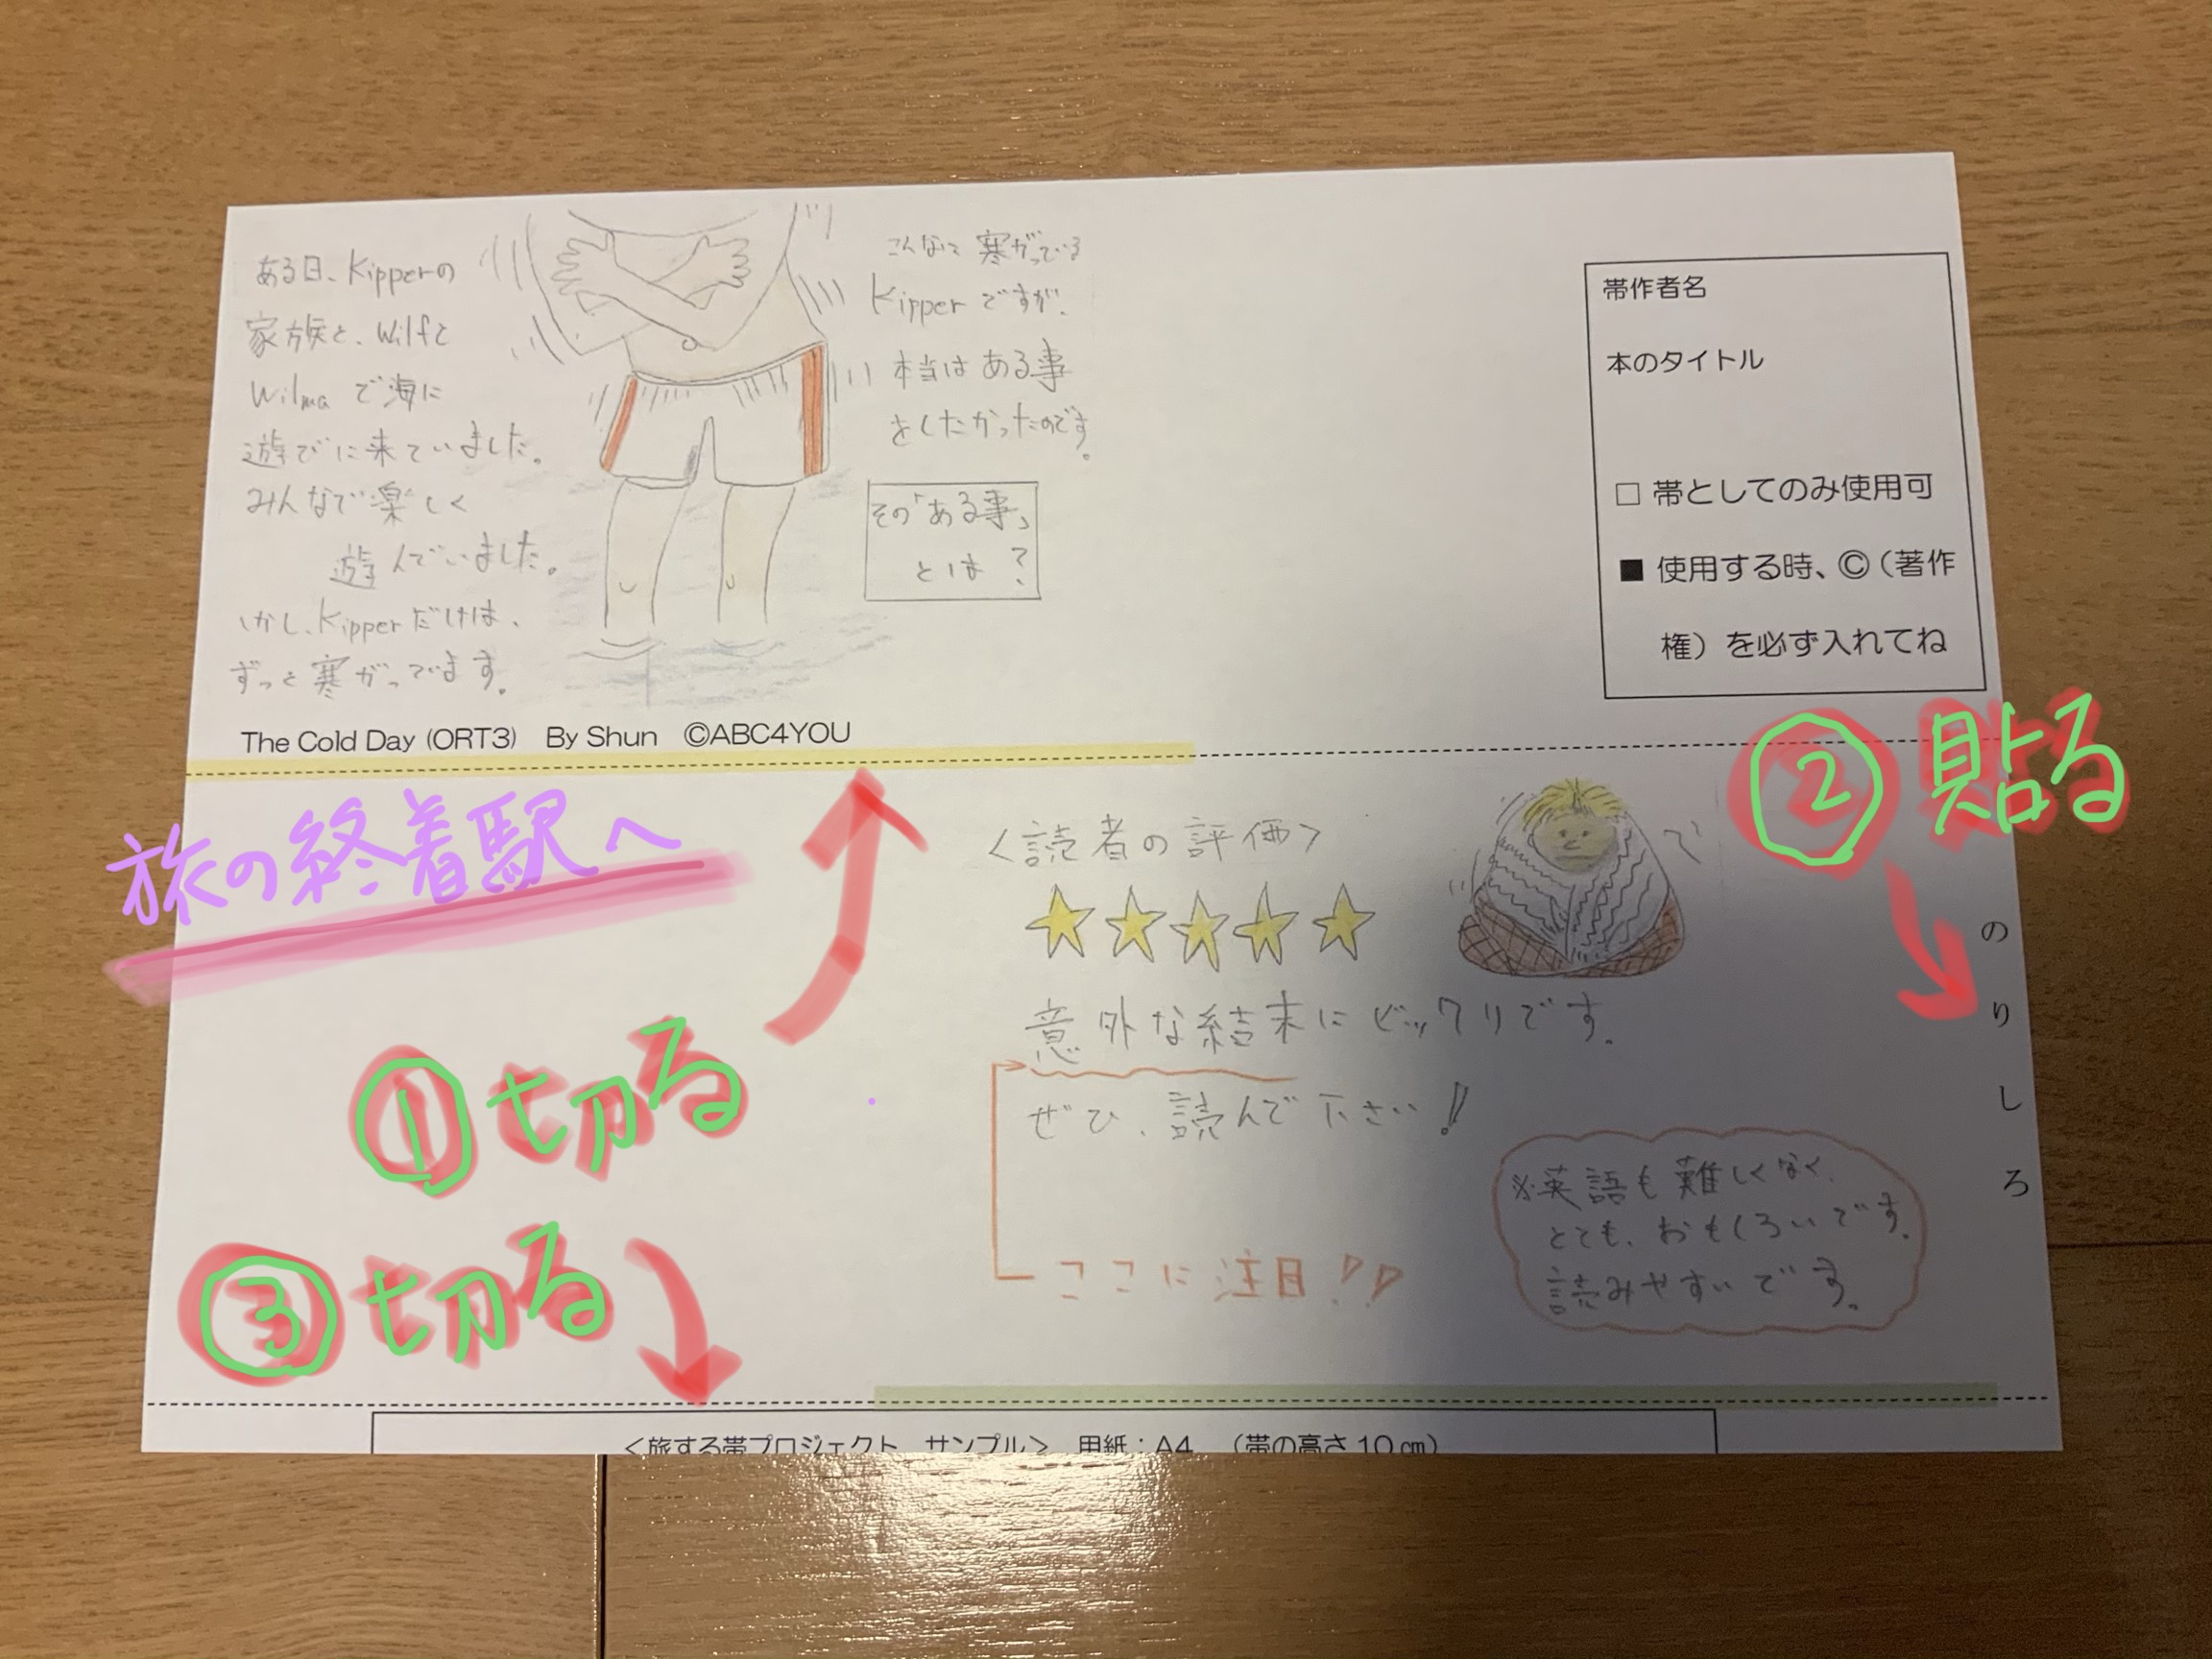 ある日、Kipperの
家族と、Wilfと
Wilma で海に
遊びに来ていました。
みんなで楽しく
遊んでいました。
しかし、Kipperだけは、
ずっと寒がってます。
こんなに寒がっている
Kipperですが、
本当はある事
をしたかったのです。
その「ある事」
とは?
The Cold Day (ORT3) By Shun ©ABC4YOU
帯作者名
本のタイトル
□ 帯としてのみ使用可
■ 使用する時、©(著作
権)を必ず入れてね
②貼る
旅の終着駅へ
①切る
③切る
<読者の評価>
★★★★★
意外な結末にビックリです。
ぜひ、読んで下さい!
ここに注目!!
※英語も難しくなく、
とても、おもしろいです。
読みやすいです。
のりしろ
<旅する帯プロジェクト サンプル> 用紙:A4 (帯の高さ10㎝)